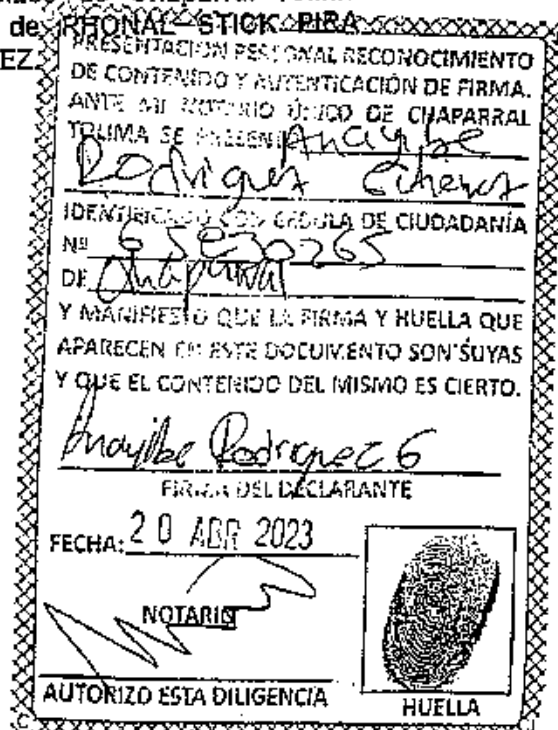 de RHONAL STICK PIRA
EZ.
PRESENTACION PERSONAL RECONOCIMIENTO
DE CONTENIDO Y AUTENTICACIÓN DE FIRMA.
ANTE MI NOTARIO ÚNICO DE CHAPARRAL
TOLIMA SE Anayibe
Rodriguez
IDENTIFICADO CON CEDULA DE CIUDADANÍA
Nº 65830265
DE Chaparral
Y MANIFIESTO QUE LA FIRMA Y HUELLA QUE
APARECEN EN ESTE DOCUMENTO SON SUYAS
Y QUE EL CONTENIDO DEL MISMO ES CIERTO.
Anayibe Rodriguez G
FIRMA DEL DECLARANTE
FECHA: 20 ABR 2023
NOTARIO
AUTORIZO ESTA DILIGENCIA
HUELLA